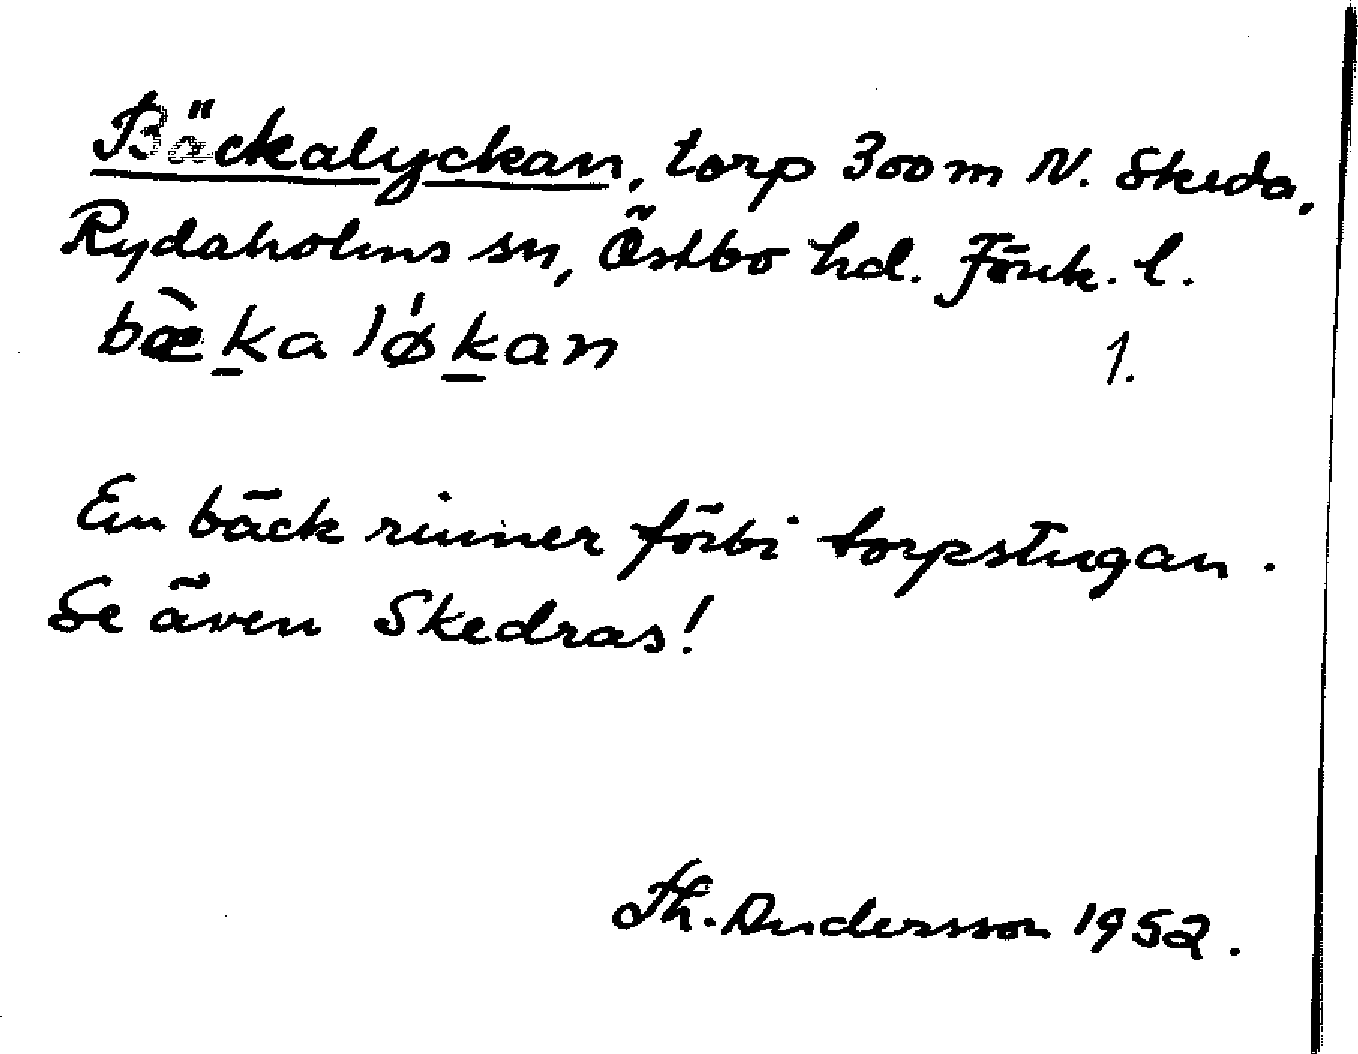 Bäckalyckan, torp 300 m N. Skeda,
Rydaholms sn, Östbo hd. Jönk. l.
bæ̀ka lø̍kan 1.
En bäck rinner förbi torpstugan.
Se även Skedras!
Th. Andersson 1952.